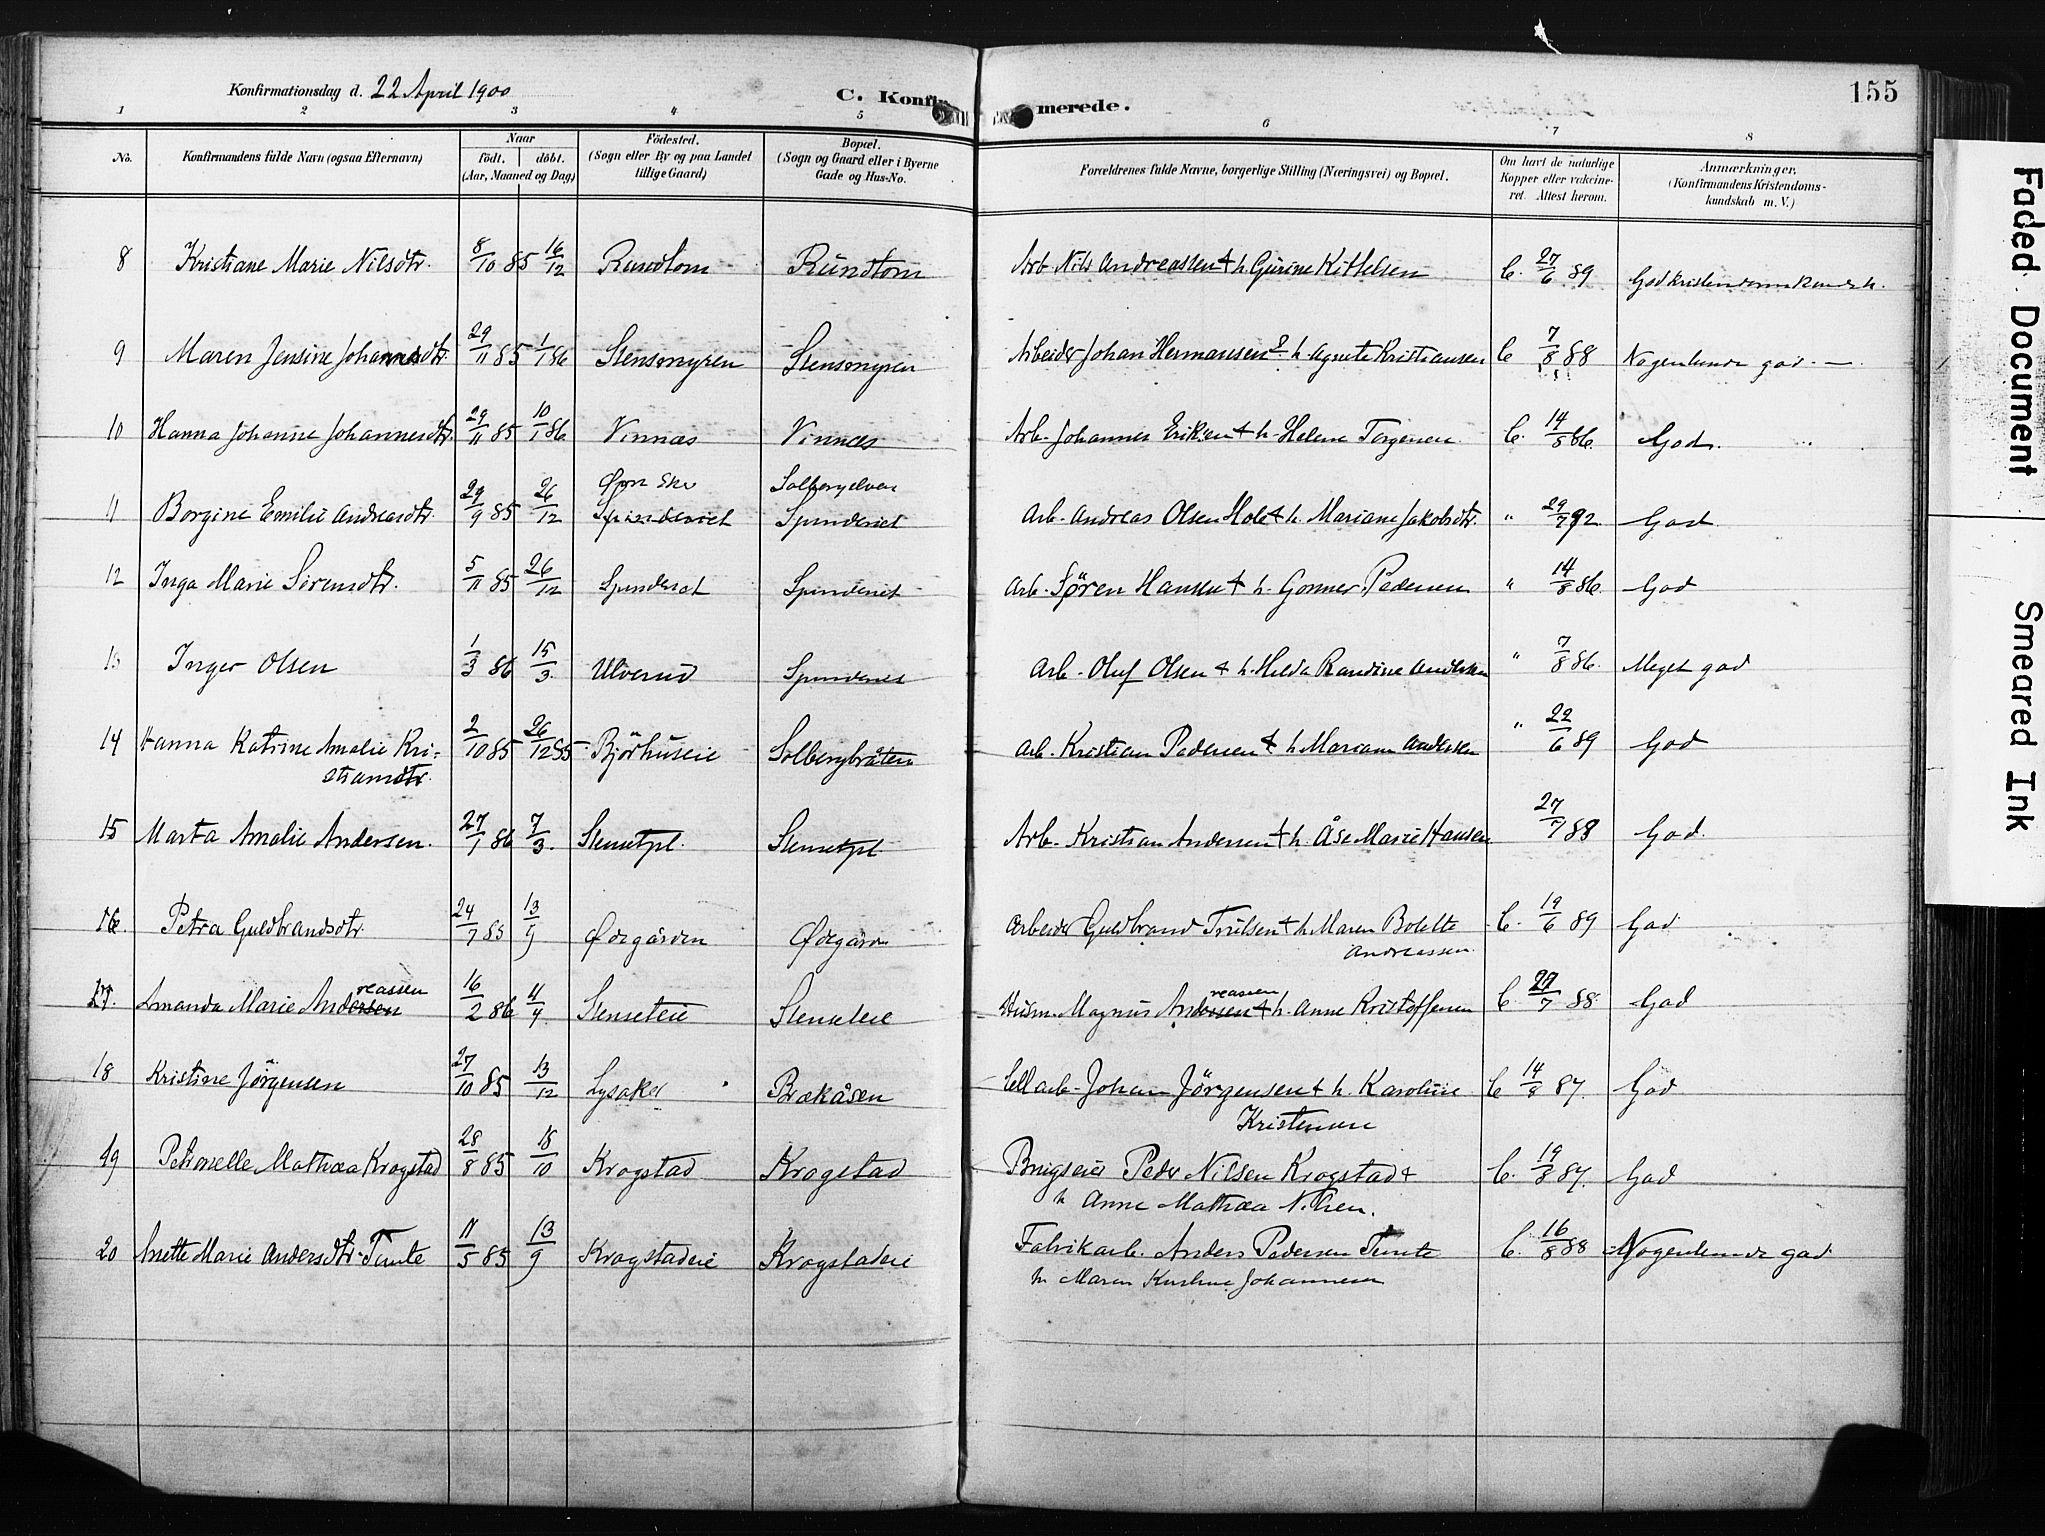 Konfirmationsdag d. 22 April 1900
C. Konfirmerede.
155
1 2 3 4 5 6 7 8
No.
Konfirmandens fulde Navn (ogsaa Efternavn)
Naar
födt. döbt.
(Aar, Maaned og Dag)
Födested.
(Sogn eller By og paa Landet
tillige Gaard)
Bopæl.
(Sogn og Gaard eller i Byerne
Gade og Hus-No.
Forældrenes fulde Navne, borgerlige Stilling (Næringsvei) og Bopæl.
Om havt de naturlige
Kopper eller vakcine-
ret. Attest herom.
Anmærkninger.
(Konfirmandens Kristendoms-
kundskab m. V.)
8 Kristiane Marie Nilsdtr. 8/10 85 16/12 Rundtom Rundtom Arb. Nils Andreassen & h. Gurine Kittelsen C. 27/6 89 God kristendomskundsk.
9 Maren Jensine Johannesdtr. 29/11 85 1/1 86 Stensmyren Stensmyren Arbeider Johan Hermansen & h. Agnete Kristiansen C 7/8 88 Nogenlunde god —
10 Hanna Johanne Johannesdtr. 29/11 85 10/1 86 Vinnæs Vinnæs Arb. Johannes Eriksen & h. Helene Torgersen C. 14/8 86. God.
Øvre Eker Solbergelven
11 Borgine Emilie Andreasdtr. 29/9 85 26/12 Spinderiet Spinderiet Arb. Andreas Olsen Hole & h. Mariane Jakobsdtr. " 29/7 92 God
12 Inga Marie Sörensdtr. 5/11 85 26/12 Spinderiet Spinderiet Arb. Søren Hansen & h. Gonner. Pedersen " 14/8 86. God
13 Inger Olsen 1/3 86 15/3. Ulverud Spinderiet Arb. Oluf Olsen & h. Hilda Randine Andersen " 7/8 86. Meget god
14 Hanna Katrine Amalie Kri-
stiansdtr. 2/10 85 26/12 85 Björhuseie Solbergbråten Arb. Kristian Pedersen & h. Mariane Andersen " 22/6 89 God
15 Marta Amalie Andersen. 27/1 86 7/3. Stensetpl. Stensetpl. Arb. Kristian Andersen & h. Åse Marie Hansen 27/7 88 God.
16. Petra Guldbrandsdtr. 24/7 85 13/9 Ødegården Ødegårdn Arbeider Guldbrand Trulsen & h. Maren Bolette
Andreassen. C. 19/6 89 God
17. Amanda Marie Andersen reassen 16/2 86 11/4. Stenseteie Stenseteie Husm. Magnus Andersen reassen & h. Anne Kristoffersen C 27/7 88. God
18 Kristine Jörgensen 27/10 85 13/12 Lysaker Brækåsen Cellarb. Johan Jörgensen & h. Karoline
Kristensen C 14/8 87. God
19 Petronelle Mathea Krogstad 28/8 85 18/10 Krogstad Krogstad Brugseier Peder Nilsen Krogstad &
h Anne Mathea Nilsen. C. 19/8 87. God
20 Anette Marie Andersdtr. Tunte 11/5 85 13/9 Krogstadeie Krogstadeie Fabrikarb. Anders Pedersen Tunte
h Maren Kristine Johannesen C. 16/8 88 Nogenlunde god
Faded Document
Smeared Ink